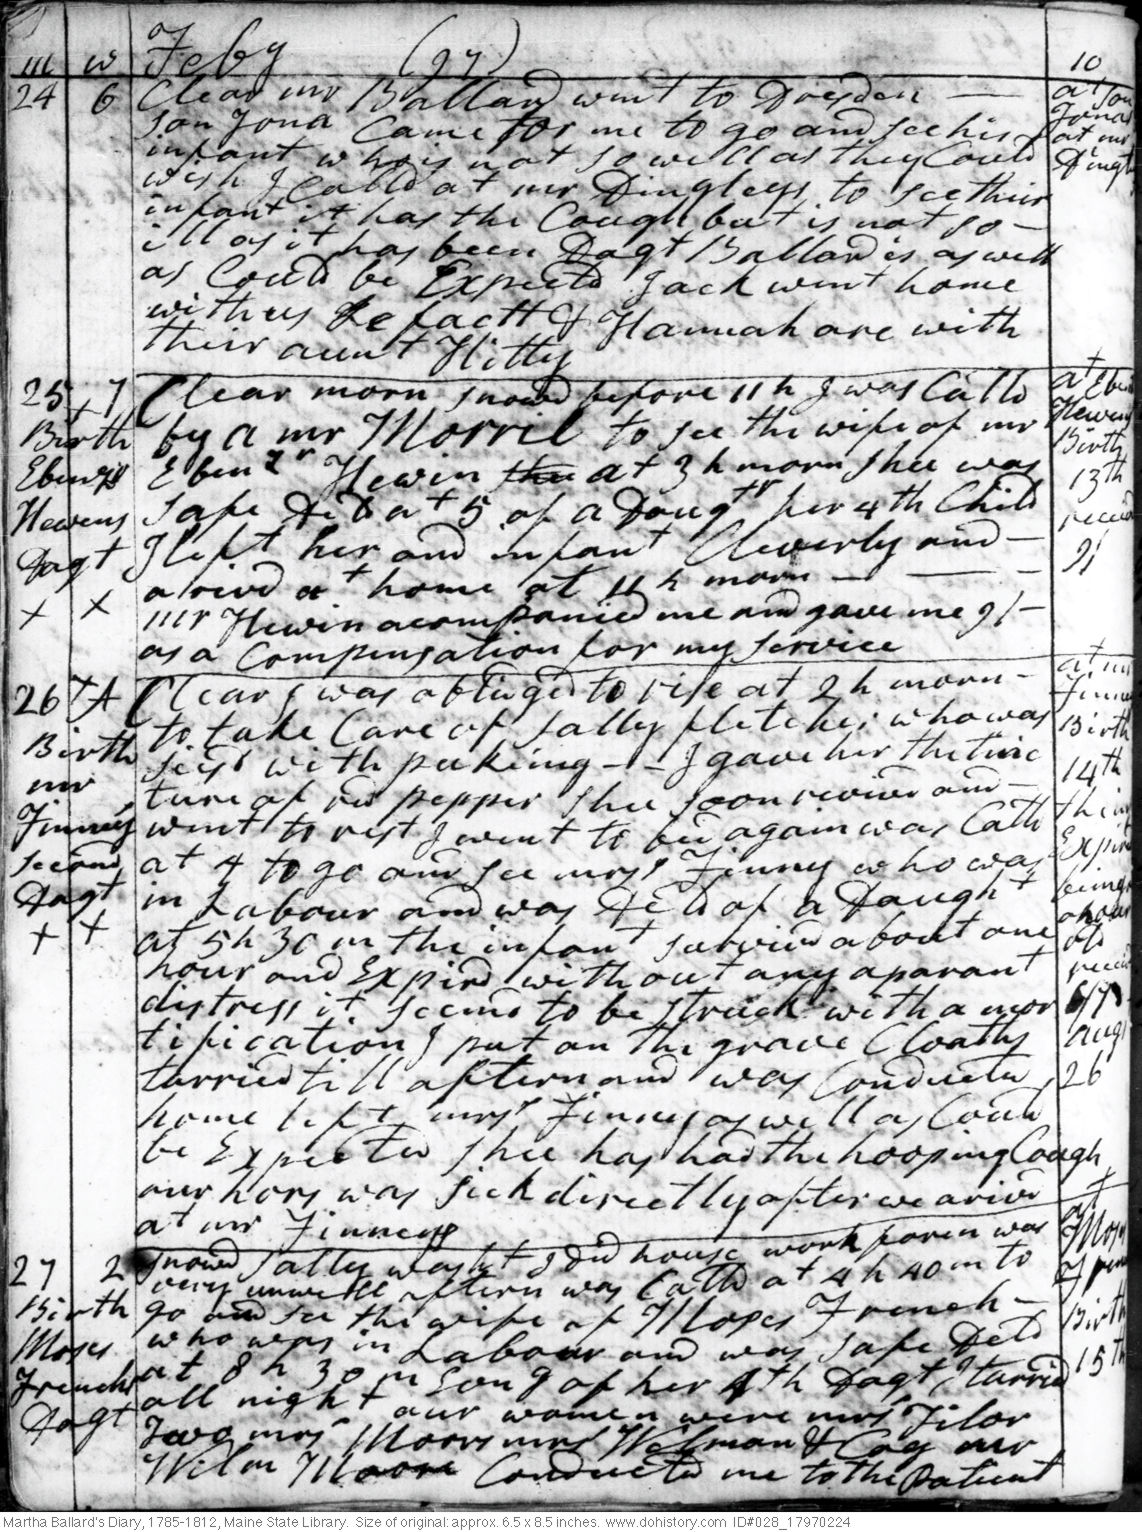 m w Feby (97) 10
24 6 Clear mr Ballard went to Dresden —
son Jona Came for me to go and see his
infant who is not so well as they Could
wish I Calld at mr Dingleys to see thier
infant it has the Cough but is not so —
ill as it has been Dagt Ballard is as well
as Could be Expected Jack went home
with us & Hannah are with
their aunt Hitty
at son
Jonas
at mr
Dingley
25 + 7 Clear morn snowd before 11 h I was Calld
by a mr Morril to see the wife of mr
Ebenzr Hewin at 3 h morn shee was
safe Deld at 5 of a Daugtr her 4th Child
I left her and infant Cleverly and —
arivd at home at 11 h morn — — —
mr Hewin acompanied me and gave me 9/—
as a Compensation for my service
Birth
Ebenzr
Hewens
Dagt
+ x
at Eben
Hewens
Birth
13th
receivd
9/
26 + A Clear I was obliuged to rise at 2 h morn —
to take Care of Sally Fletcher who was
seisd with puking — — I gave her the tinc
ture of rd pepper shee soon revivd and —
went to rest I went to bed again was Calld
at 4 to go and see mrs Finny who was
in Labour and was Deld of a Daught
at 5 h 30 m the infant survivd about one
hour and Expird without any aparant
distress it seemd to be struck with a mor
tification I put on the grave Cloaths
tarried till aftern and was Conducted
home left mrs Finney as well as Could
be Expected shee has had the hooping Cough
our hors was sick directly after we arivd
at mr Finneys
Birth
mr
Finneys
second
Dagt
+ +
at mr
Finneys
Birth
14th
Expird
being
old
receivd
6/
augt
26
27 2 snowd Sally washt I did house work foren was
very unwell aftern was Calld at 4 h 40 m to
go and see the wife of Moses French —
who was in Labour and was safe Deld
at 8 h 30 m Evng of her 4th Dagt I tarried
all night our women were mrs Tilor
Two mrs Moors mrs Wilman & Coy mr
Wilm Moore Conducted me to the Patient
Birth
Moses
Frenchs
Dagt
at
Moses
French
Birth
15th
Martha Ballard's Diary, 1785-1812, Maine State Library. Size of original: approx. 6.5 x 8.5 inches. www.dohistory.com ID#028_17970224